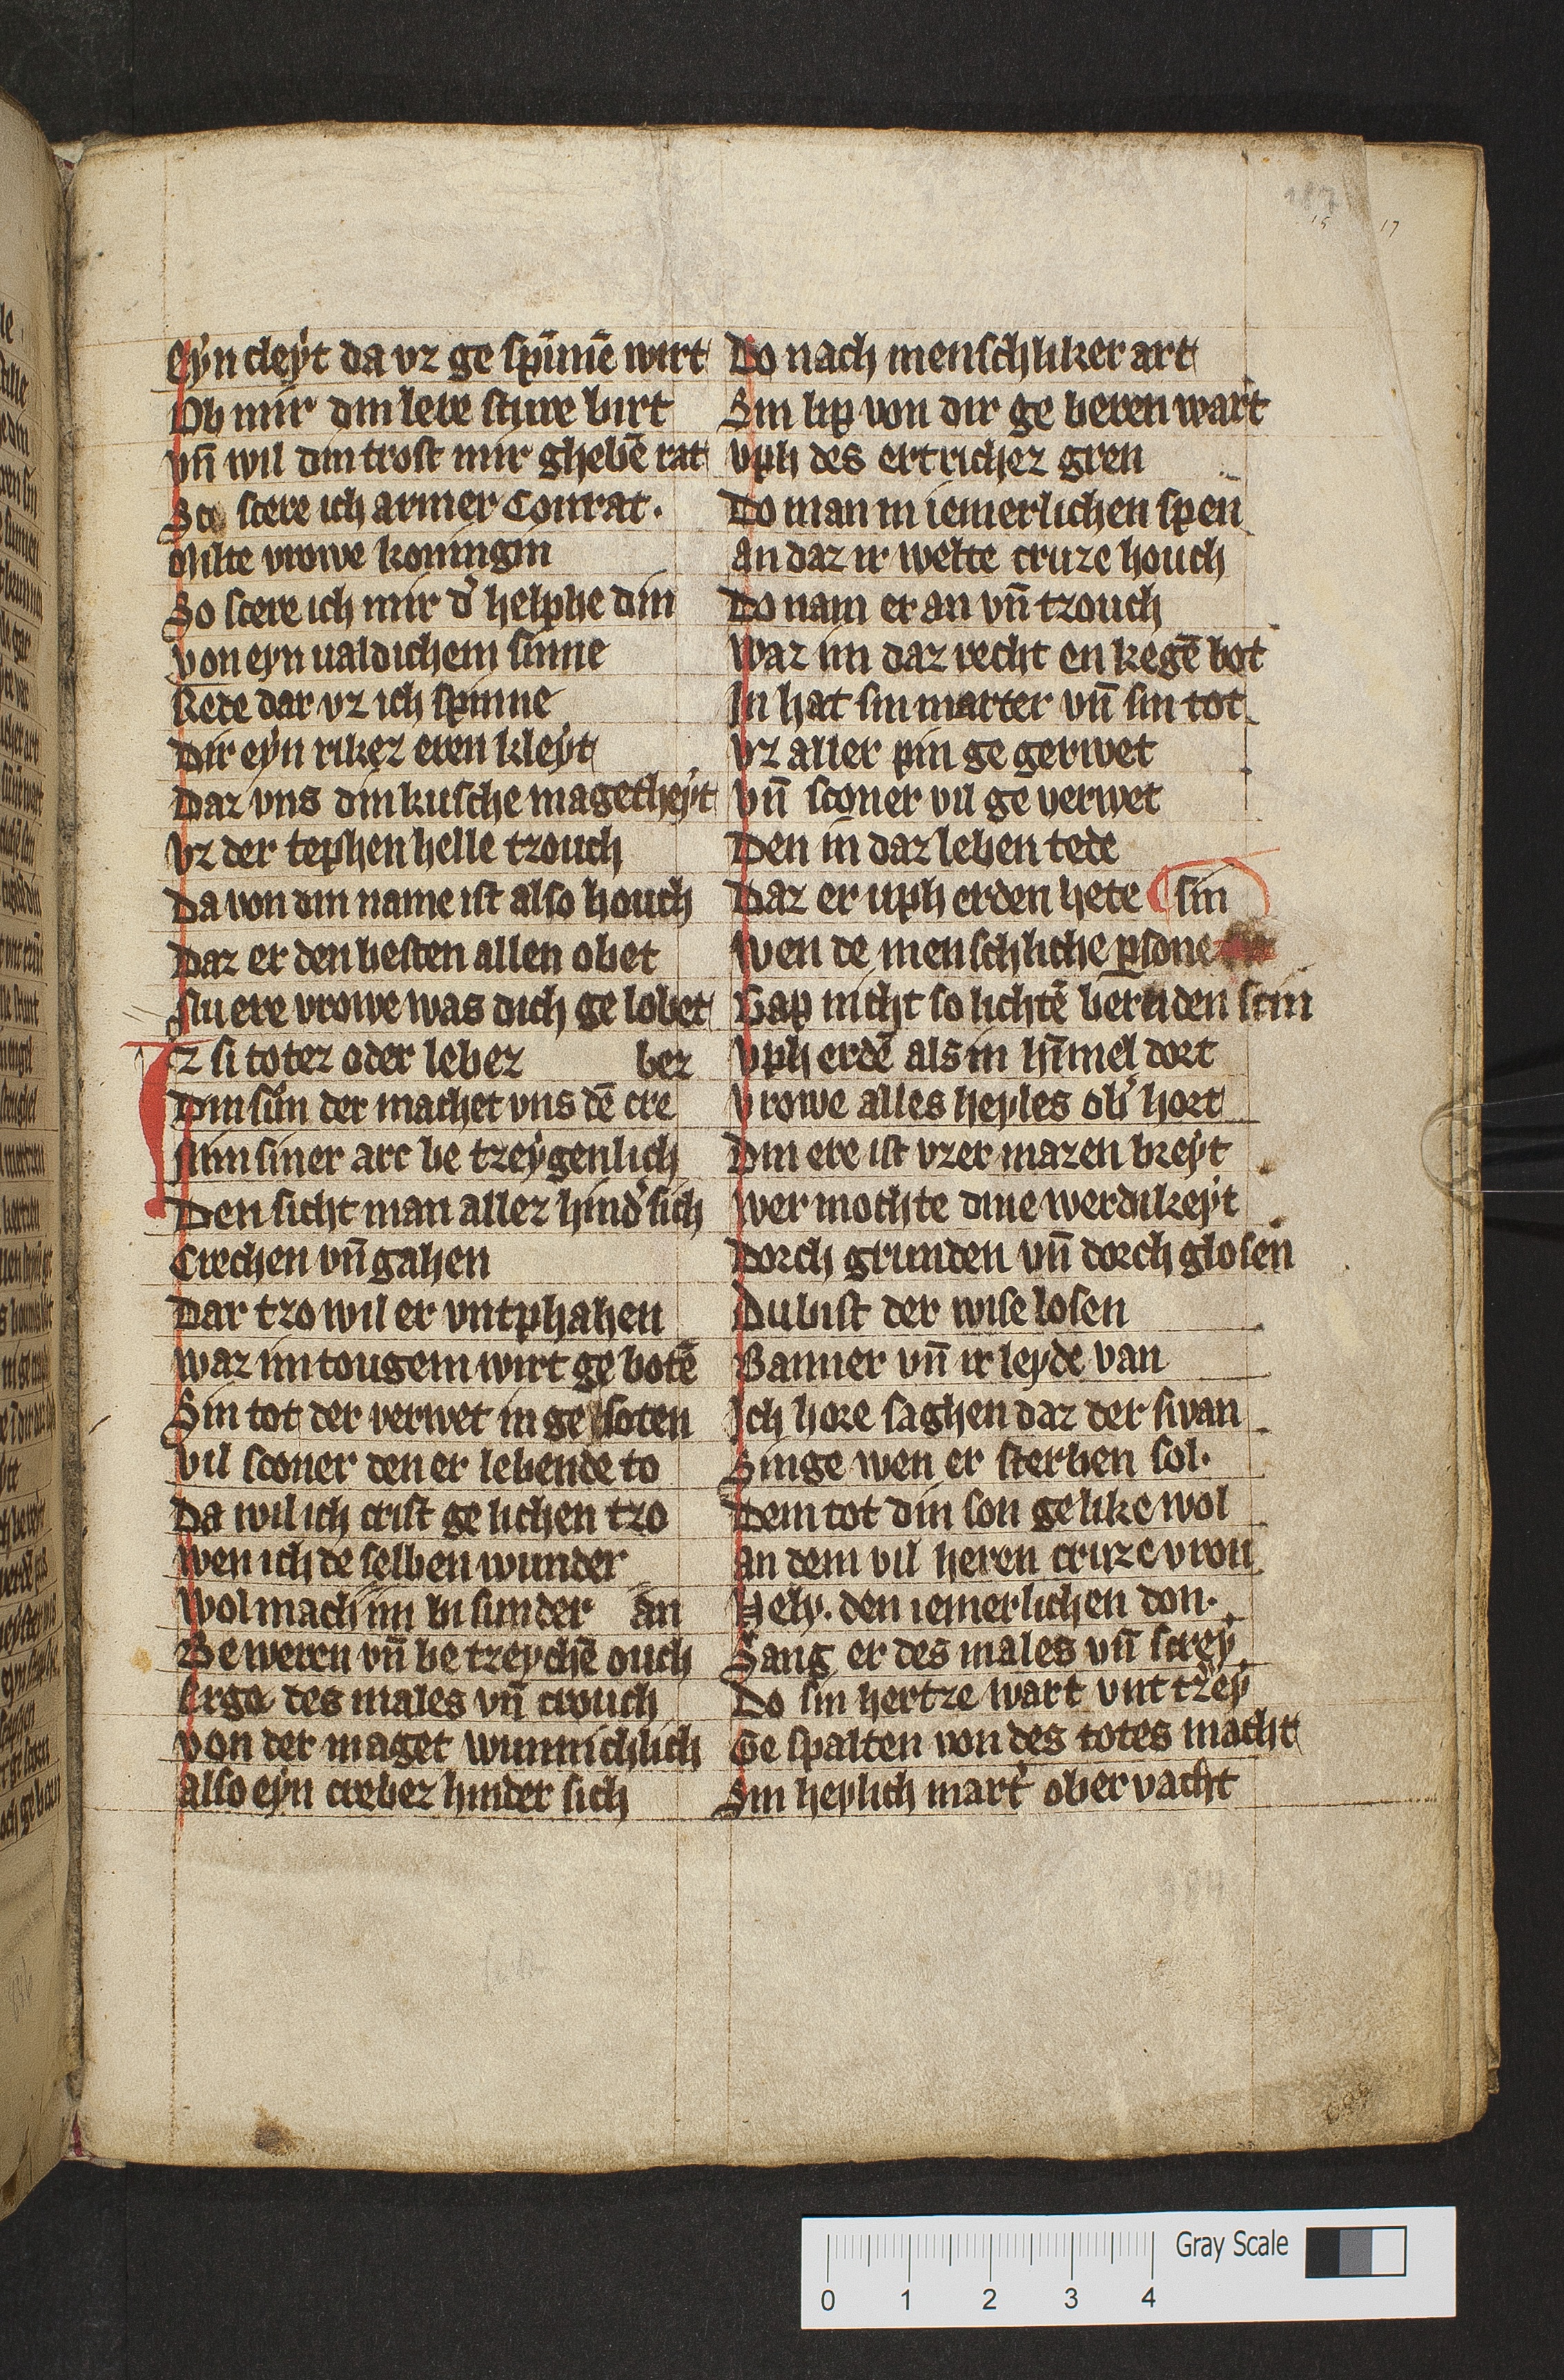 eyn cleyt da vz ge spīnnē wirt
Ob mir din lere sture birt
vn̄ wil din trost mir ghebē rat
So stere ich armer Conrat.
Milte vrowe koningin
So stere ich mir d' helphe din
von eyn ualdichem sinne
Rede dar vz ich spinne
Dir eyn rikez eren kleyt
Daz vns din kusche magetheyt
vz der tephen helle tzouch
Da von din name ist also houch
Daz er den besten allen obet
vrowe was dich ge lobet
Iz si totez oder lebez bez
Din sun der machet vns dē cre
siner art be tzeygenlich
Den sicht man allez hind' sich
Crechen vn̄ gahen
Dar tzo wil er vntphahen
waz im tougem wirt ge botē
Sin tot der verwet in ge soten
vil sconer den er lebende to
Da wil ich crist ge lichen tzo
wen ich de selben wunder
wol mach im bi sunder an
Beweren vn̄ be tzeychē ouch
des males vn̄ crouch
von der maget wunnichlich
also eyn crebez hinder sich
Do nach menschliker art
Sin lip von dir ge beren wart
vph des ertrichez gren
Do man in iemerlichen spen
an daz ir welte cruze houch
Do nam er an vn̄ tzouch
waz im daz recht en kegē bot
In hat sin marter vn̄ sin tot
vz aller pin ge gerwet
vn̄ sconer vil ge verwet
Den in daz leben tede
Daz er uph erden hete sin
wen de menschliche psone
Gap nicht so lichtē bernden scin
vph erdē als in himel dort
vrowe alles heyles ob' hort
Din ere ist vzer mazen breyt
wer mochte dine werdikeyt
Dorch grunden vn̄ dorch glosen
Du bist der wise losen
Banner vn̄ ir leyde van
Ich hore saghen daz der swan
Singe wen er sterben sol.
Dem tot din son gelike wol
an dem vil heren cruze vron
Hely. den iemerlichen don.
Sang er des males vn̄ screy
Do sin hertze wart vnt tzey
Ge spalten von des totes macht
Sin heylich mart' ober vacht
15
17
Gray Scale
0 1 2 3 4